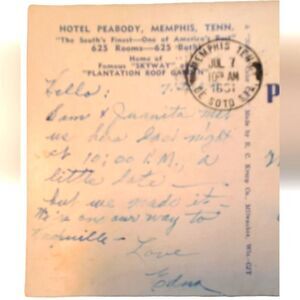 HOTEL PEABODY, MEMPHIS, TENN.
"The South's Finest—One of America's Best"
625 Rooms—625 Baths
Home of
Famous "SKYWAY"
"PLANTATION ROOF GARDEN"
MEMPHIS TENN.
JUL 7
10 AM
DE SOTO STA.
Hello:
Sam & Juanita met
us here last night
at 10:00 P.M., a
little late —
but we made it —
on our way to
Love
Edna
Made by E. C. Kropp Co., Milwaukee, Wis.
P